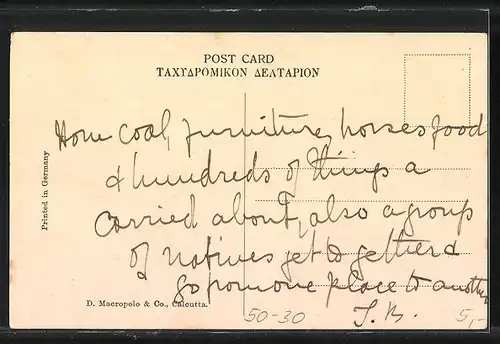 POST CARD
ΤΑΧΥΔΡΟΜΙΚΟΝ ΔΕΛΤΑΡΙΟΝ
How coal, furniture, horses food
& hundreds of things a
carried about, also a group
of natives get to gether &
go from one place to another
J. B.
Printed in Germany
D. Macropolo & Co., Calcutta.
50-30
5,-